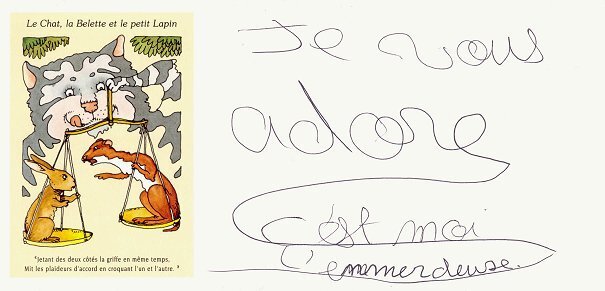 Le Chat, la Belette et le petit Lapin
"Jetant des deux côtés la griffe en même temps,
Mit les plaideurs d'accord en croquant l'un et l'autre."
Je vous
adore
c'est moi
l'emmerdeuse.